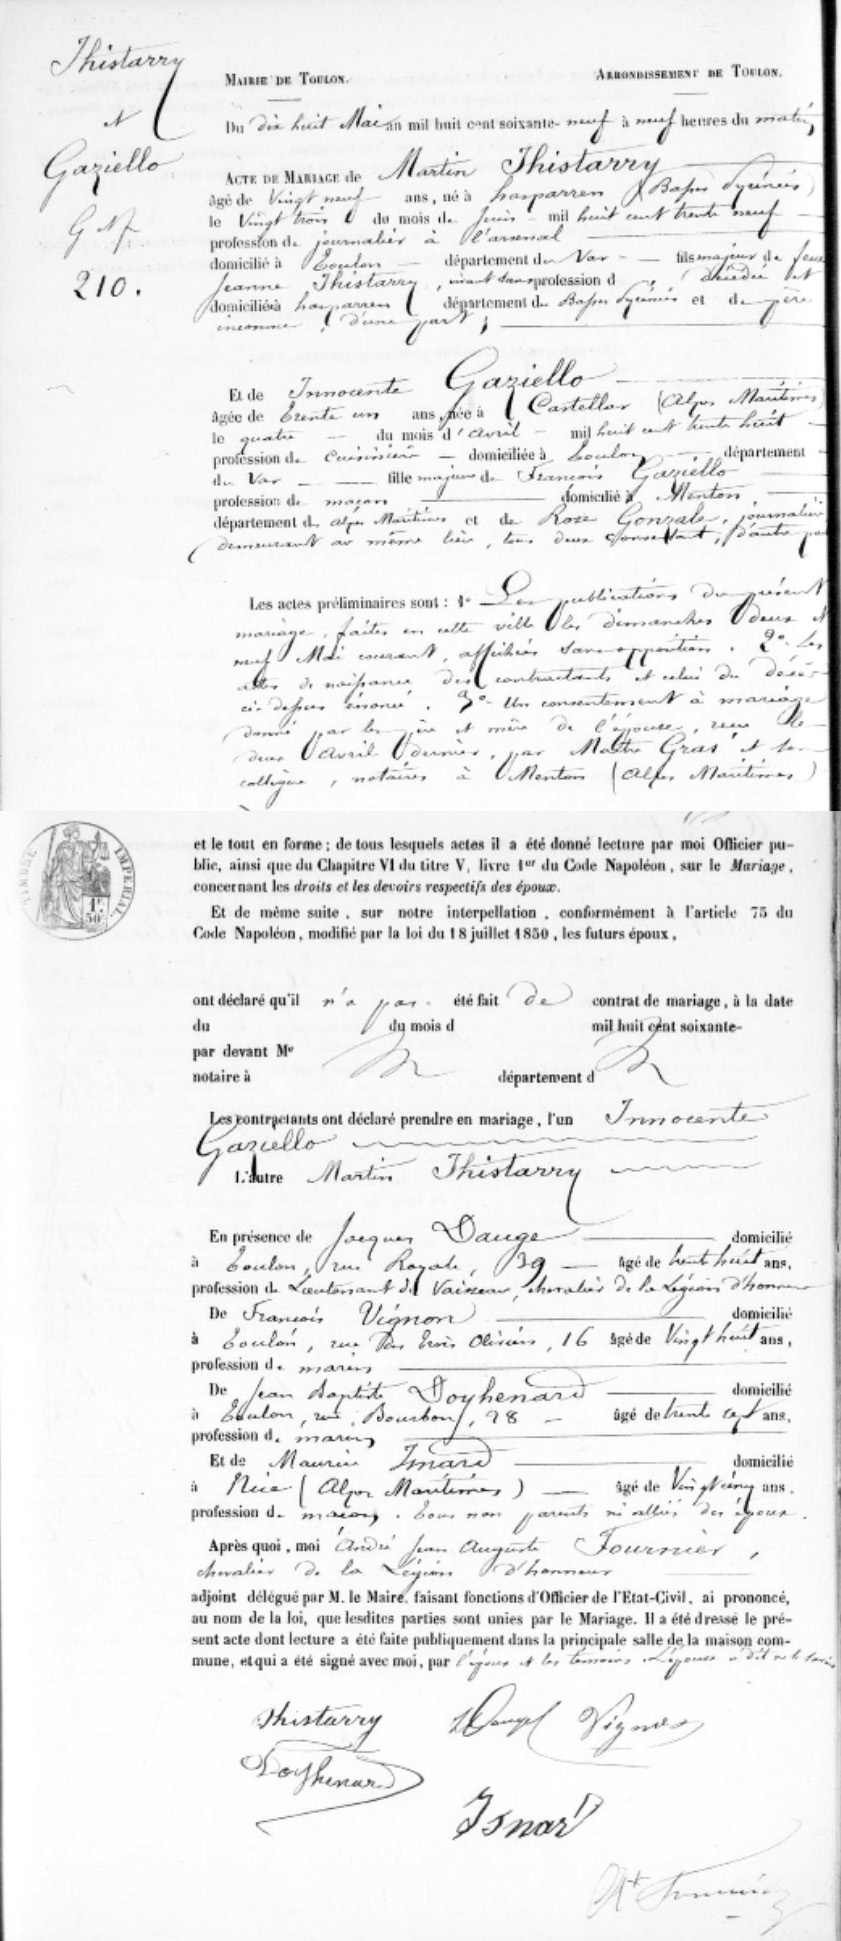 Thistarry
et
Gaziello
G N.
210.
MAIRIE DE TOULON. ARRONDISSEMENT DE TOULON.
Du dix huit Mai an mil huit cent soixante- neuf à neuf heures du matin,
ACTE DE MARIAGE de Martin Thistarry
âgé de Vingt neuf ans, né à hasparren (Basses Pyrénées)
le Vingt trois du mois de Juin mil huit cent trente neuf
profession de journalier à l'arsenal
domicilié à Toulon département du Var fils majeur de feue
Jeanne Thistarry, vivant sans profession d , décédée et
domiciliée à hasparren département des Basses Pyrénées et de père
inconnu, d'une part ;
Et de Innocente Gaziello
âgée de Trente un ans née à Castellar (Alpes Maritimes)
le quatre du mois d'avril mil huit cent trente huit
profession de Cuisinière domiciliée à Toulon département
du Var fille majeure de François Gaziello
profession de maçon domicilié à Menton
département des Alpes Maritimes et de Rose Gonzale, journalière
demeurant au même lieu, tous deux consentant, d'autre part
Les actes préliminaires sont : 1° Les publications du présent
mariage, faites en cette ville les dimanches deux et
neuf Mai courant, affichées sans opposition. 2° Les
actes de naissance des contractants et celui du décès
ci-dessus énoncé. 3° Un consentement à mariage
donné par les père et mère de l'épouse, reçu le
deux Avril dernier, par Maître Gras et son
collègue, notaires à Menton (Alpes Maritimes)
TIMBRE IMPERIAL
1F.
50C.
et le tout en forme ; de tous lesquels actes il a été donné lecture par moi Officier pu-
blic, ainsi que du Chapitre VI du titre V, livre 1er du Code Napoléon, sur le Mariage,
concernant les droits et les devoirs respectifs des époux.
Et de même suite, sur notre interpellation, conformément à l'article 75 du
Code Napoléon, modifié par la loi du 18 juillet 1850, les futurs époux,
ont déclaré qu'il n'a pas été fait de contrat de mariage, à la date
du du mois d mil huit cent soixante-
par devant Me
notaire à département d
Les contractants ont déclaré prendre en mariage, l'un Innocente
Gaziello
L'autre Martin Thistarry
En présence de Jacques Dauge domicilié
à Toulon, rue Royale, 39 âgé de trente huit ans,
profession de Lieutenant de Vaisseau, chevalier de la Légion d'honneur
De François Vignon domicilié
à Toulon, rue des Trois Oliviers, 16 âgé de Vingt huit ans,
profession de marin
De Jean Baptiste Doyhenard domicilié
à Toulon, rue Bourbon, 28 âgé de trente sept ans,
profession de marin
Et de Maurice Isnard domicilié
à Nice (Alpes Maritimes) âgé de Vingt cinq ans.
profession de maçon. Tous non parents ni alliés des époux.
Après quoi, moi André Jean Auguste Fournier,
chevalier de la Légion d'honneur
adjoint délégué par M. le Maire, faisant fonctions d'Officier de l'Etat-Civil, ai prononcé,
au nom de la loi, que lesdites parties sont unies par le Mariage. Il a été dressé le pré-
sent acte dont lecture a été faite publiquement dans la principale salle de la maison com-
mune, et qui a été signé avec moi, par l'époux et les témoins. L'épouse a dit ne le savoir
thistarry Dauge Vignon
Doyhenard
Isnard